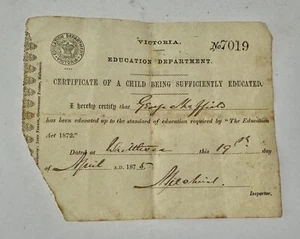 VICTORIA.
No 7019
EDUCATION DEPARTMENT.
CERTIFICATE OF A CHILD BEING SUFFICIENTLY EDUCATED.
I hereby certify that George Sheffield
has been educated up to the standard of education required by "The Education
Act 1872."
Dated at this 19th day
of April A.D. 1875.
Inspector.